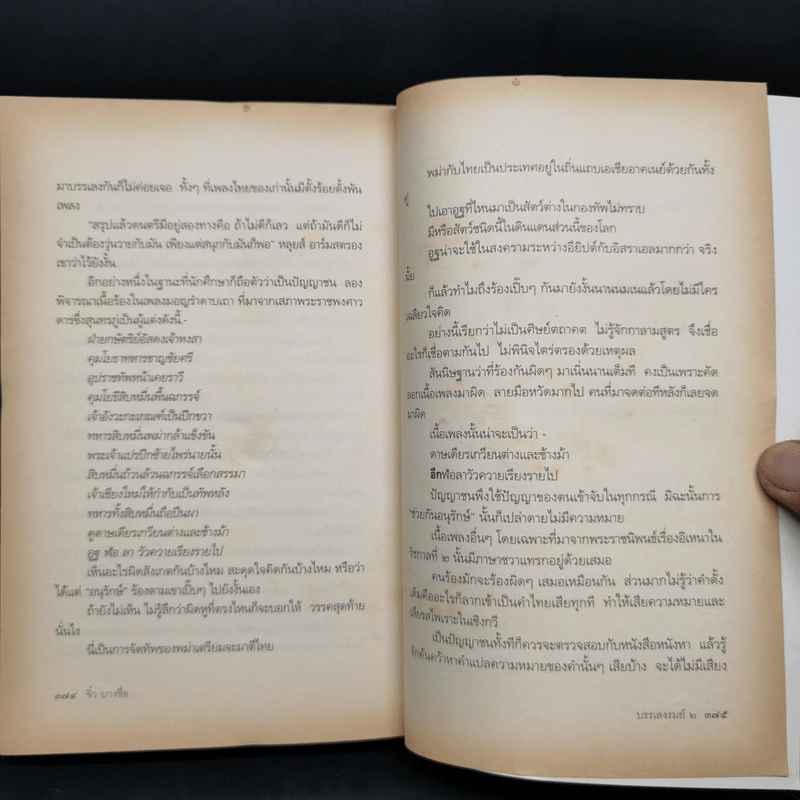 มาบรรเลงกันก็ไม่ค่อยเจอ ทั้งๆ ที่เพลงไทยของเก่านั้นมีตั้งร้อยตั้งพัน
เพลง
"สรุปแล้วดนตรีมีอยู่สองทางคือ ถ้าไม่ดีก็เลว แต่ถ้ามันดีก็ไม่
จำเป็นต้องวุ่นวายกับมัน เพียงแต่สนุกกับมันก็พอ" หลุยส์ อาร์มสตรอง
เขาว่าไว้ยังงั้น
อีกอย่างหนึ่งในฐานะที่นักศึกษาก็ถือตัวว่าเป็นปัญญาชน ลอง
พิจารณาเนื้อร้องในเพลงมอญรำดาบเถา ที่มาจากเสภาพระราชพงศาว
ดารซึ่งสุนทรภู่เป็นผู้แต่งดังนี้.-
ฝ่ายกษัตริย์อัสดงเจ้าหงสา
คุมโยธาทหารชาญชัยศรี
อุปราชทัพหน้าเคยราวี
คุมโยธีสิบหมื่นพื้นฉกรรจ์
เจ้าอังวะกะเกณฑ์เป็นปีกขวา
ทหารสิบหมื่นพม่ากล้าแข็งขัน
พระเจ้าแปรปีกซ้ายไพร่นายนั้น
สิบหมื่นถ้วนล้วนฉกรรจ์เลือกสรรมา
เจ้าเชียงใหม่ให้กำกับเป็นทัพหลัง
ทหารทั้งสิบหมื่นถือปืนผา
ดูดาษเดียรเกวียนต่างและช้างม้า
อูฐ ฬ่อ ลา วัวควายเรียงรายไป
เห็นอะไรผิดสังเกตกันบ้างไหม สะดุดใจคิดกันบ้างไหม หรือว่า
ได้แต่ "อนุรักษ์" ร้องตามเขาเปี๊ยบๆ ไปยังงั้นเอง
ถ้ายังไม่เห็น ไม่รู้สึกว่าผิดหูที่ตรงไหนก็จะบอกให้ วรรคสุดท้าย
นั่นไง
นี่เป็นการจัดทัพของพม่าเตรียมจะมาตีไทย
๓๗๔ จิ๋ว บางซื่อ
พม่ากับไทยเป็นประเทศอยู่ในถิ่นแถบเอเซียอาคเนย์ด้วยกันทั้ง
คู่
ไปเอาอูฐที่ไหนมาเป็นสัตว์ต่างในกองทัพไม่ทราบ
มีหรือสัตว์ชนิดนี้ในดินแดนส่วนนี้ของโลก
อูฐน่าจะใช้ในสงครามระหว่างอียิปต์กับอิสราเอลมากกว่า จริง
มั้ย
ก็แล้วทำไมถึงร้องเปี๊ยบๆ กันมายังงั้นนานนมเนแล้วโดยไม่มีใคร
เฉลียวใจคิด
อย่างนี้เรียกว่าไม่เป็นศิษย์ตถาคต ไม่รู้จักกาลามสูตร จึงเชื่อ
อะไรก็เชื่อตามกันไป ไม่พินิจไตร่ตรองด้วยเหตุผล
สันนิษฐานว่าที่ร้องกันผิดๆ มาเนิ่นนานเต็มที คงเป็นเพราะคัด
ลอกเนื้อเพลงมาผิด ลายมือหวัดมากไป คนที่มาจดต่อทีหลังก็เลยจด
มาผิด
เนื้อเพลงนั้นน่าจะเป็นว่า -
ดาษเดียรเกวียนต่างและช้างม้า
อีกฬ่อลาวัวควายเรียงรายไป
ปัญญาชนพึงใช้ปัญญาของตนเข้าจับในทุกกรณี มิฉะนั้นการ
"ช่วยกันอนุรักษ์" นั้นก็เปล่าดายไม่มีความหมาย
เนื้อเพลงอื่นๆ โดยเฉพาะที่มาจากพระราชนิพนธ์เรื่องอิเหนาใน
รัชกาลที่ ๒ นั้นมีภาษาชวาแทรกอยู่ด้วยเสมอ
คนร้องมักจะร้องผิดๆ เสมอเหมือนกัน ส่วนมากไม่รู้ว่าคำดั้ง
เดิมคืออะไรก็ลากเข้าเป็นคำไทยเสียทุกที ทำให้เสียความหมายและ
เสียรสไพเราะในเชิงกวี
เป็นปัญญาชนทั้งทีก็ควรจะตรวจสอบกับหนังสือหนังหา แล้วรู้
จักค้นคว้าหาคำแปลความหมายของคำนั้นๆ เสียบ้าง จะได้ไม่มีเสียง
บรรเลงรมย์ ๒ ๓๗๕